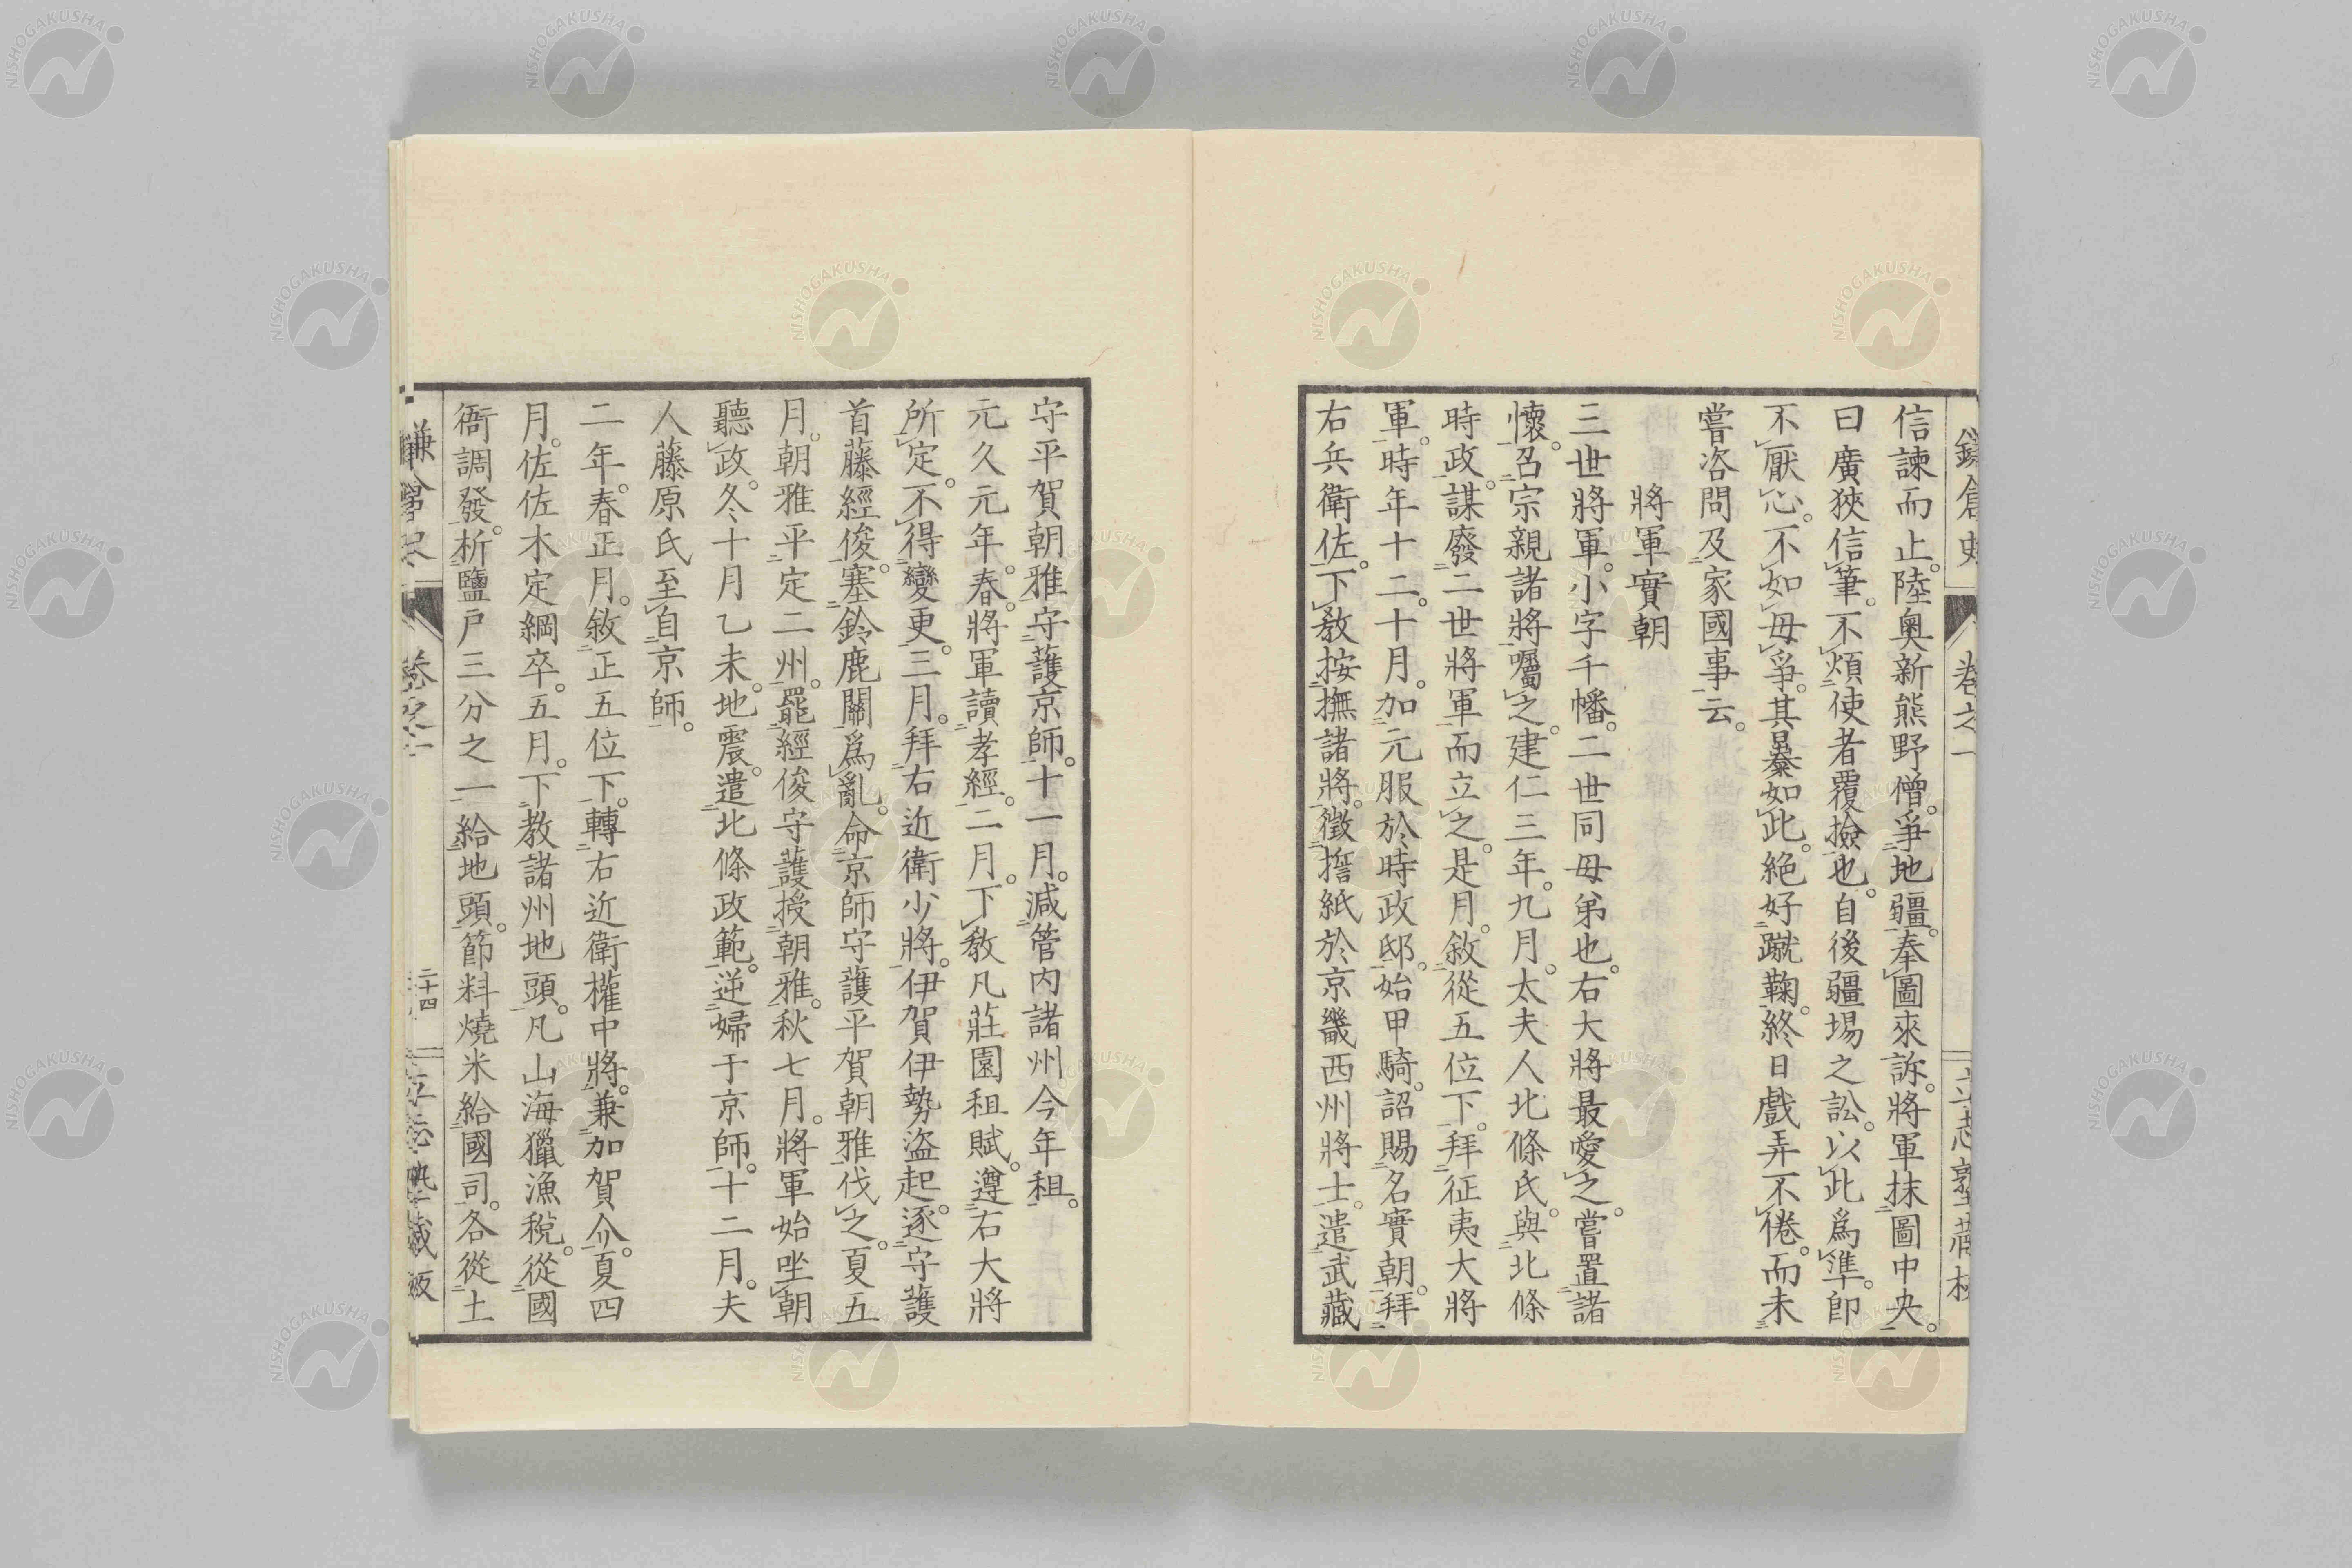 鎌倉史 卷之一 立志塾藏板
信諫而止。陸奧新熊野僧。爭地疆。奉圖來訴。將軍抹圖中央。
曰廣狹信筆。不煩使者覆撿也。自後疆埸之訟。以此爲準。卽
不厭心。不如毋爭。其暴如此。絕好蹴鞠。終日戲弄不倦。而未
嘗咨問及家國事云。
將軍實朝
三世將軍。小字千幡。二世同母弟也。右大將最愛之。嘗置諸
懷。召宗親諸將囑之。建仁三年。九月。太夫人北條氏。與北條
時政。謀廢二世將軍而立之。是月。敘從五位下。拜征夷大將
軍。時年十二。十月。加元服於時政邸。始甲騎。詔賜名實朝。拜
右兵衛佐。下敎按撫諸將。徵誓紙於京畿西州將士。遣武藏
守平賀朝雅。守護京師。十一月。減管内諸州今年租。
元久元年。春。將軍讀孝經。二月。下敎凡莊園租賦。遵右大將
所定。不得變更。三月。拜右近衛少將。伊賀伊勢盜起。逐守護
首藤經俊。塞鈴鹿關爲亂。命京師守護平賀朝雅伐之。夏五
月。朝雅平定二州。罷經俊守護授朝雅。秋七月。將軍始坐朝
聽政。冬十月乙未。地震。遣北條政範。逆婦于京師。十二月。夫
人藤原氏至自京師。
二年。春正月。敘正五位下。轉右近衛權中將。兼加賀介。夏四
月。佐佐木定綱卒。五月。下教諸州地頭。凡山海獵漁稅。從國
衙調發。析鹽戶三分之一給地頭。節料燒米給國司。各從土
卷之一 二十四